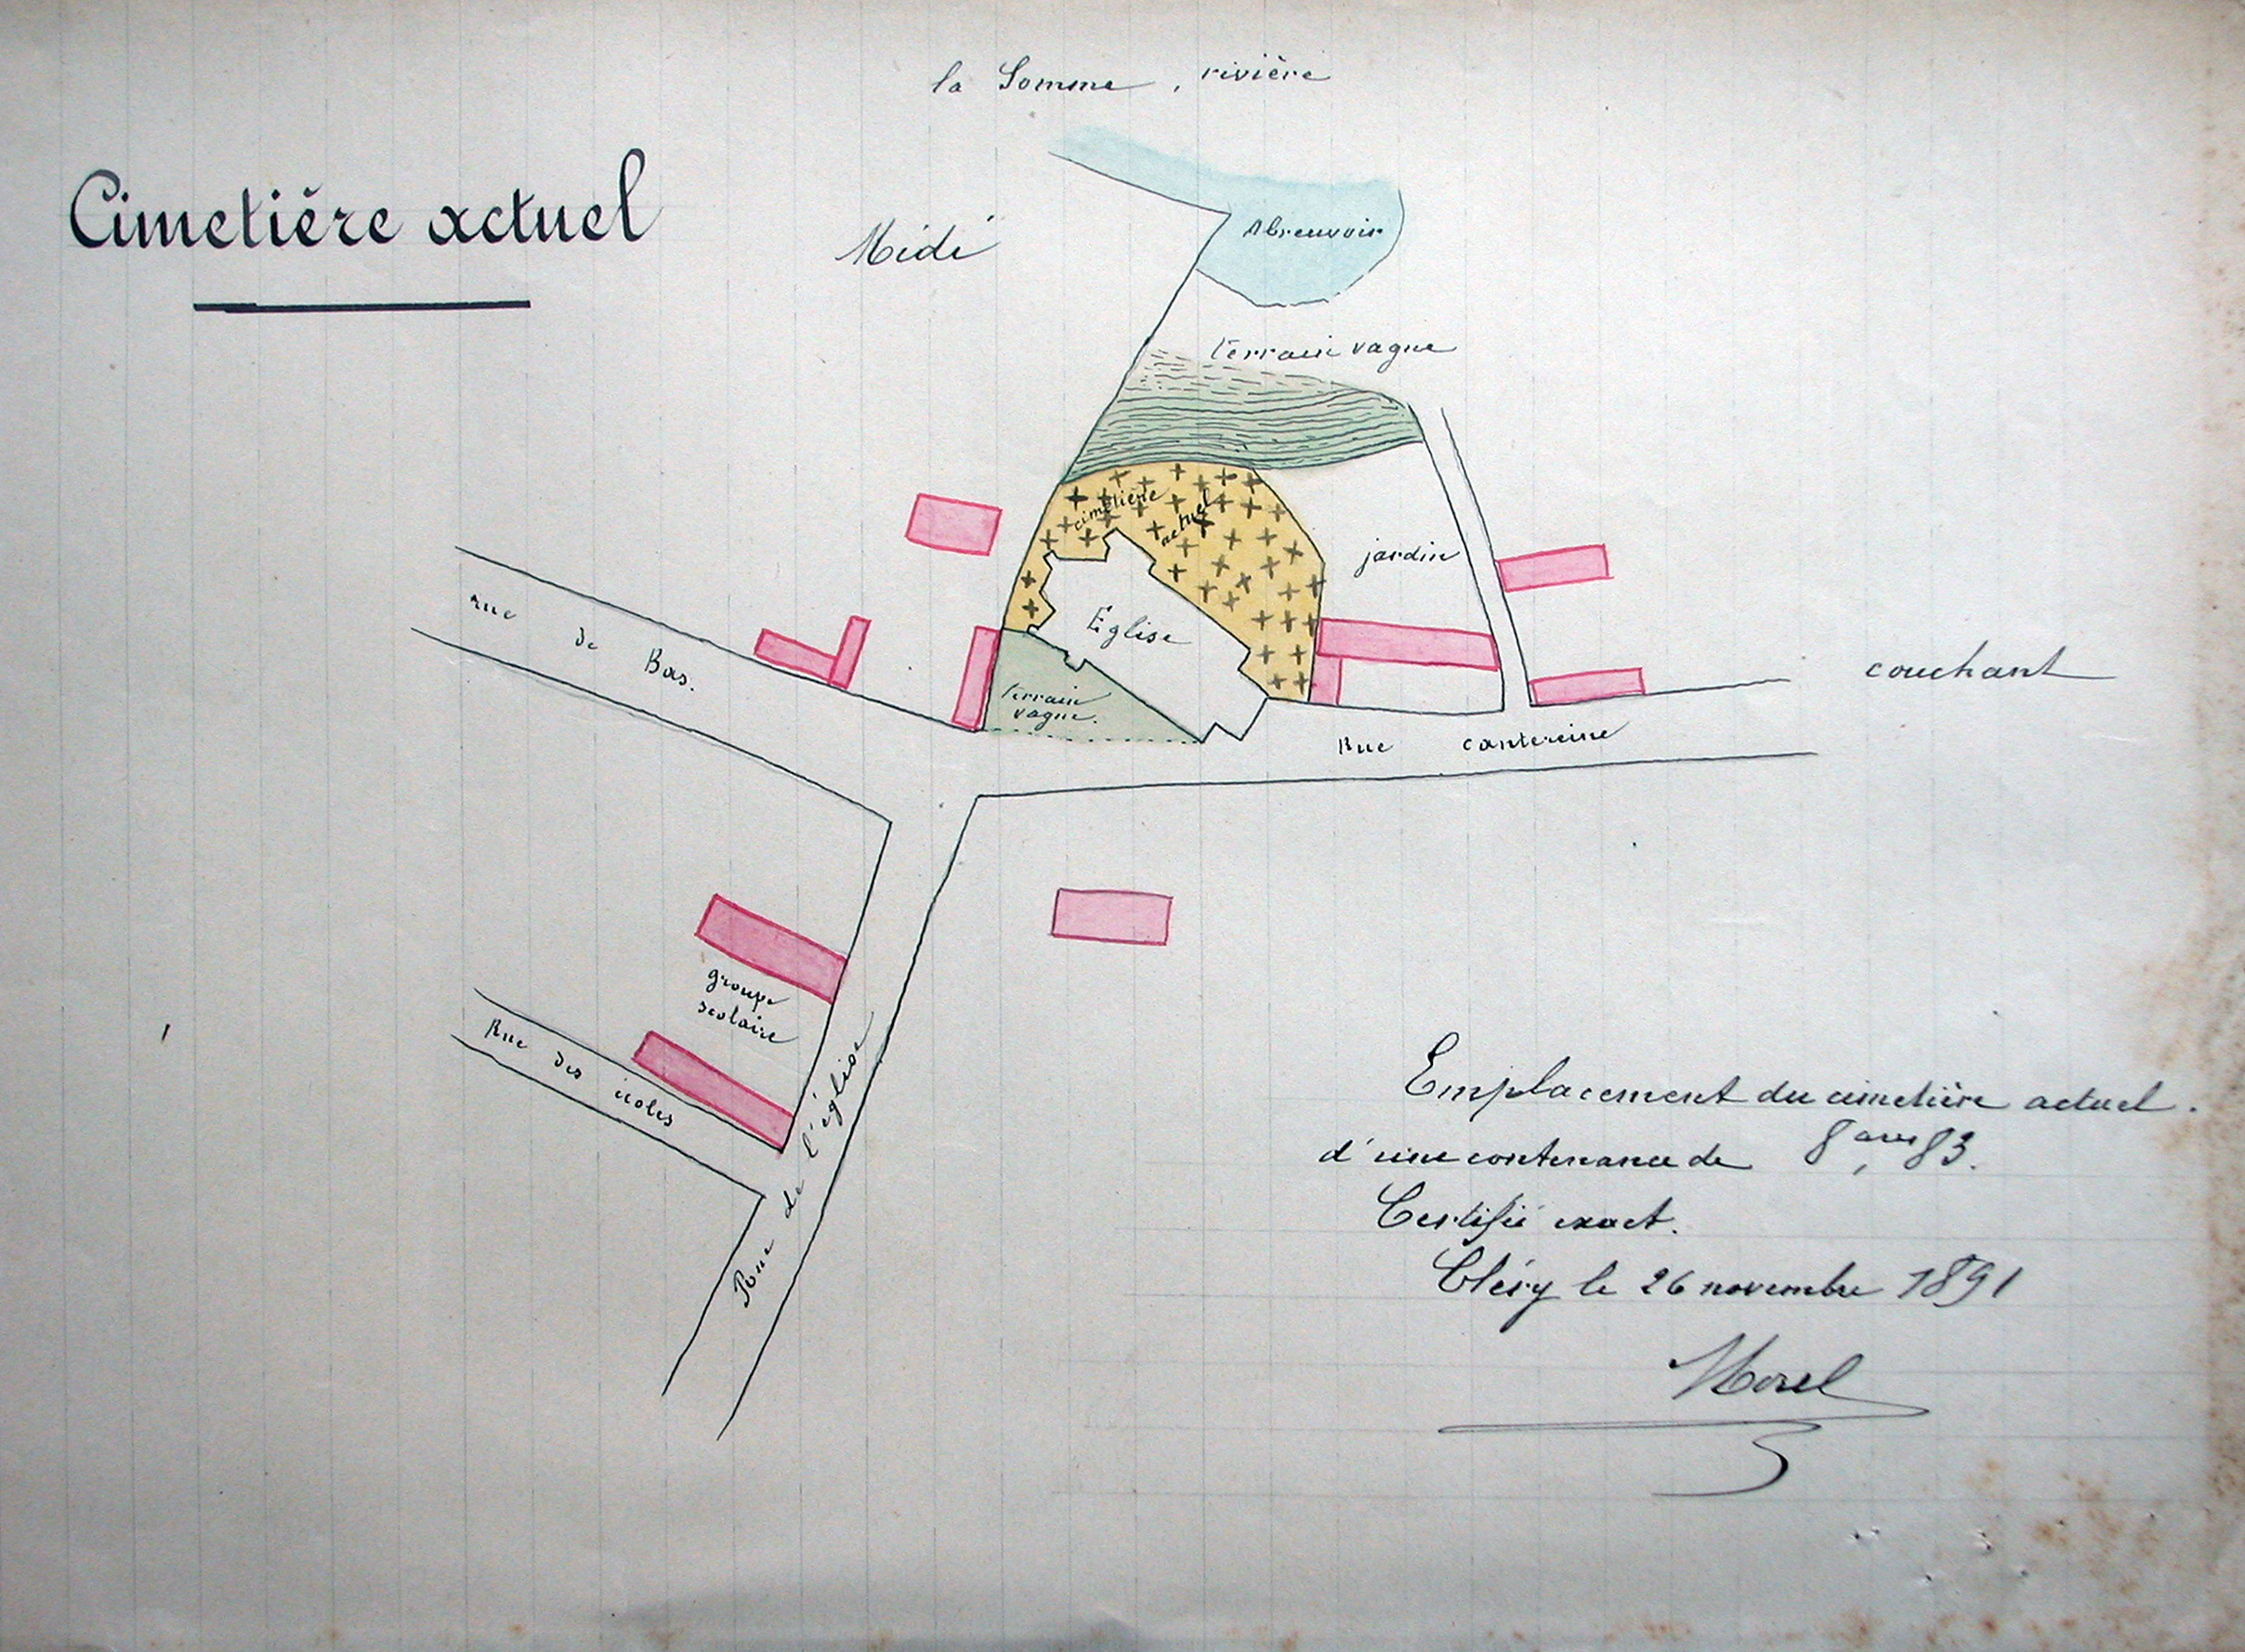 la Somme, rivière
Cimetière actuel
Midi
Abreuvoir
terrain vague
cimetière
actuel
jardin
Eglise
rue de Bas.
terrain
vague.
couchant
Rue Cantereine
groupe
scolaire
Rue des écoles
Rue de l'église
Emplacement du cimetière actuel.
d'une contenance de 8 ares, 83.
Certifié exact.
Cléry le 26 novembre 1891
Morel